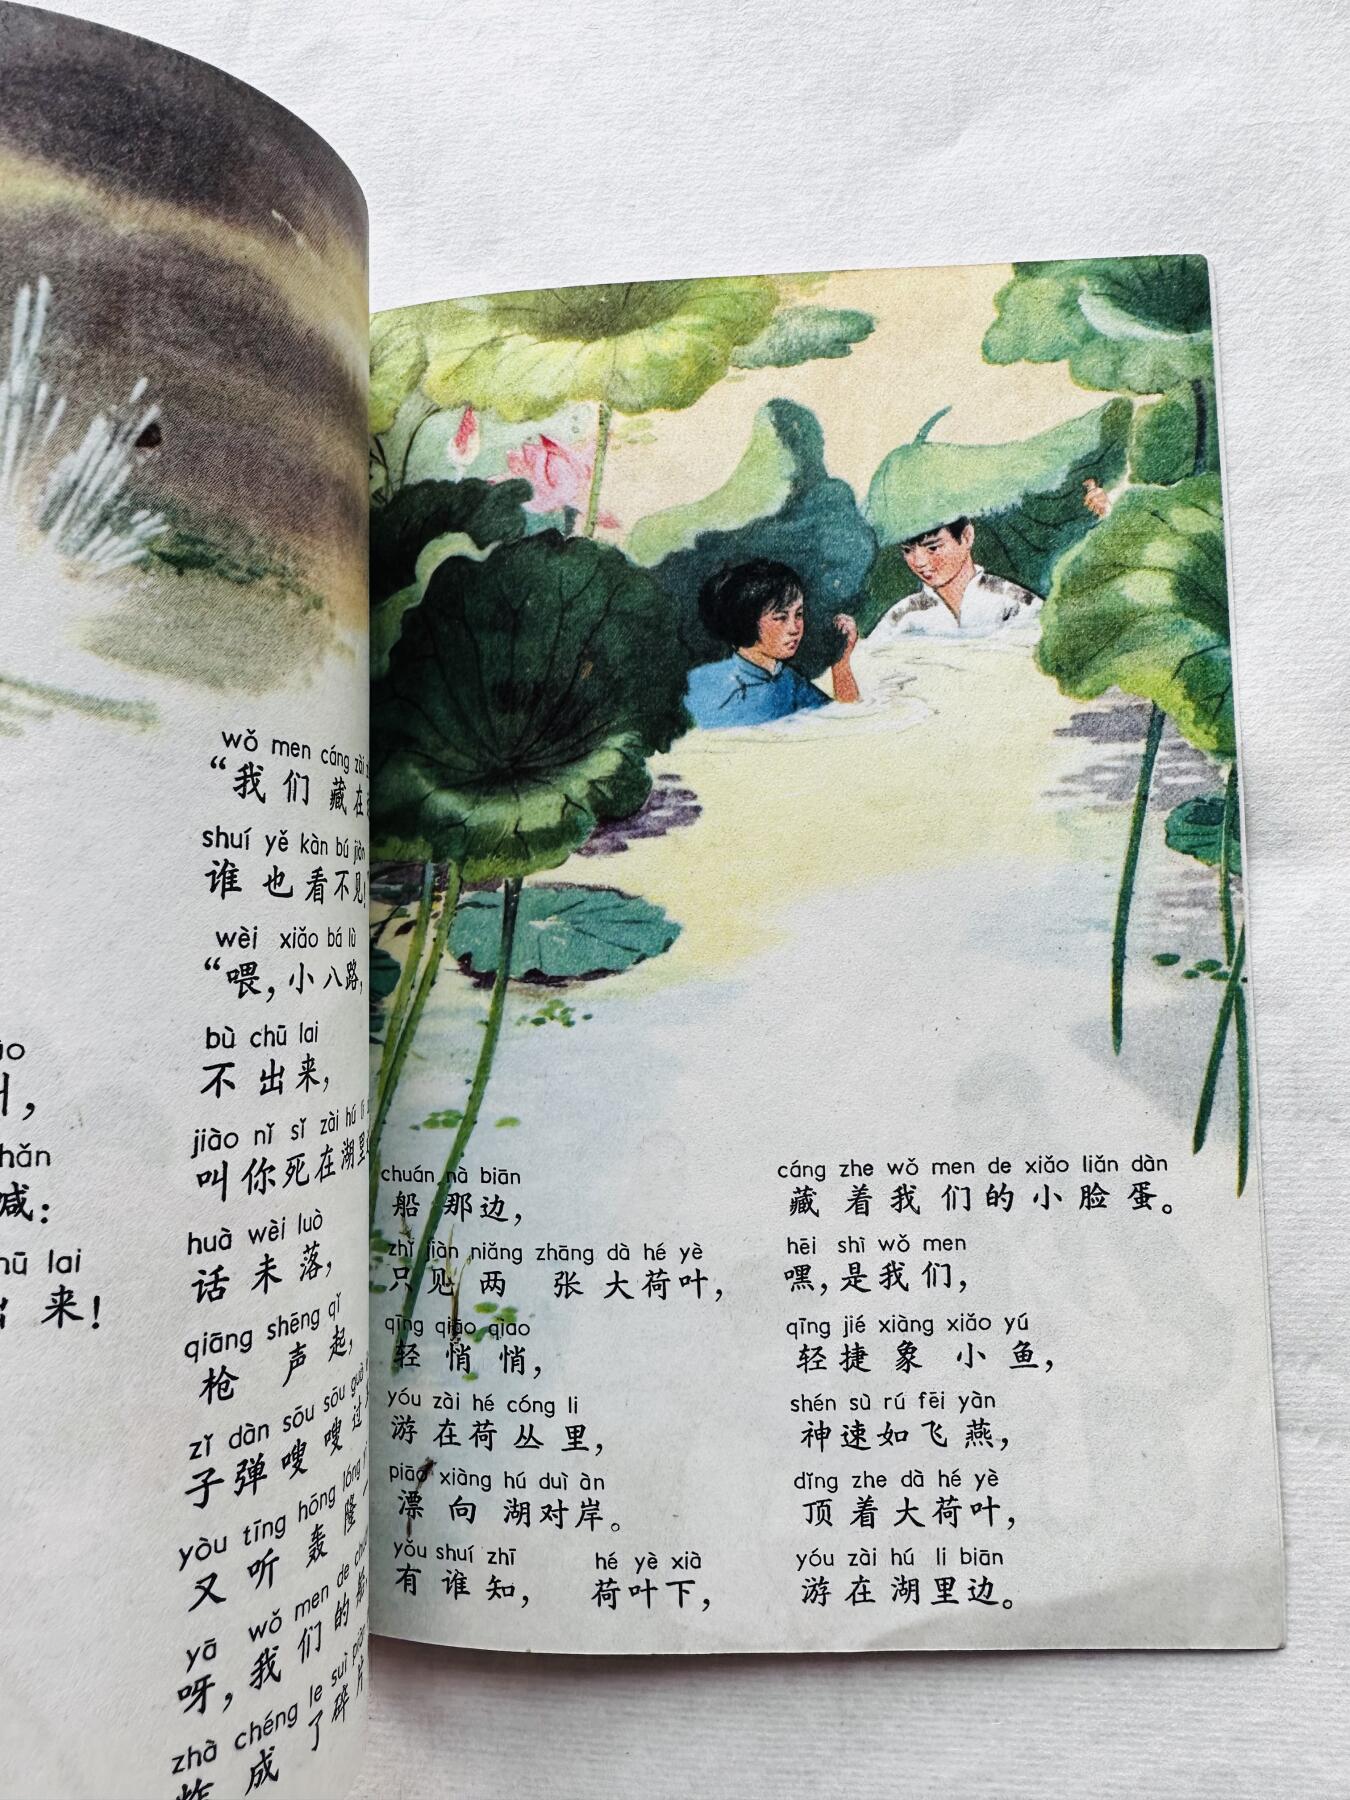 wǒ men cáng zài
“我们藏在
shuí yě kàn bú jiàn
谁也看不见！
wèi xiǎo bá lù
“喂，小八路，
bù chū lai
不出来，
jiào nǐ sǐ zài hú li
叫你死在湖里
huà wèi luò
话未落，
qiāng shēng qǐ
枪声起，
zǐ dàn sōu sōu guò
子弹嗖嗖过
yòu tīng hōng lóng
又听轰隆
yā wǒ men de chuán
呀，我们的船
zhà chéng le suì piàn
炸成了碎片
hǎn
喊：
chū lai
出来！
chuán nà biān
船那边，
zhǐ jiàn niǎng zhāng dà hé yè
只见两张大荷叶，
qīng qiāo qiao
轻悄悄，
yóu zài hé cóng li
游在荷丛里，
piāo xiàng hú duì àn
漂向湖对岸。
yǒu shuí zhī hé yè xià
有谁知，荷叶下，
cáng zhe wǒ men de xiǎo liǎn dàn
藏着我们的小脸蛋。
hēi shì wǒ men
嘿，是我们，
qīng jié xiàng xiǎo yú
轻捷象小鱼，
shén sù rú fēi yàn
神速如飞燕，
dǐng zhe dà hé yè
顶着大荷叶，
yóu zài hú li biān
游在湖里边。